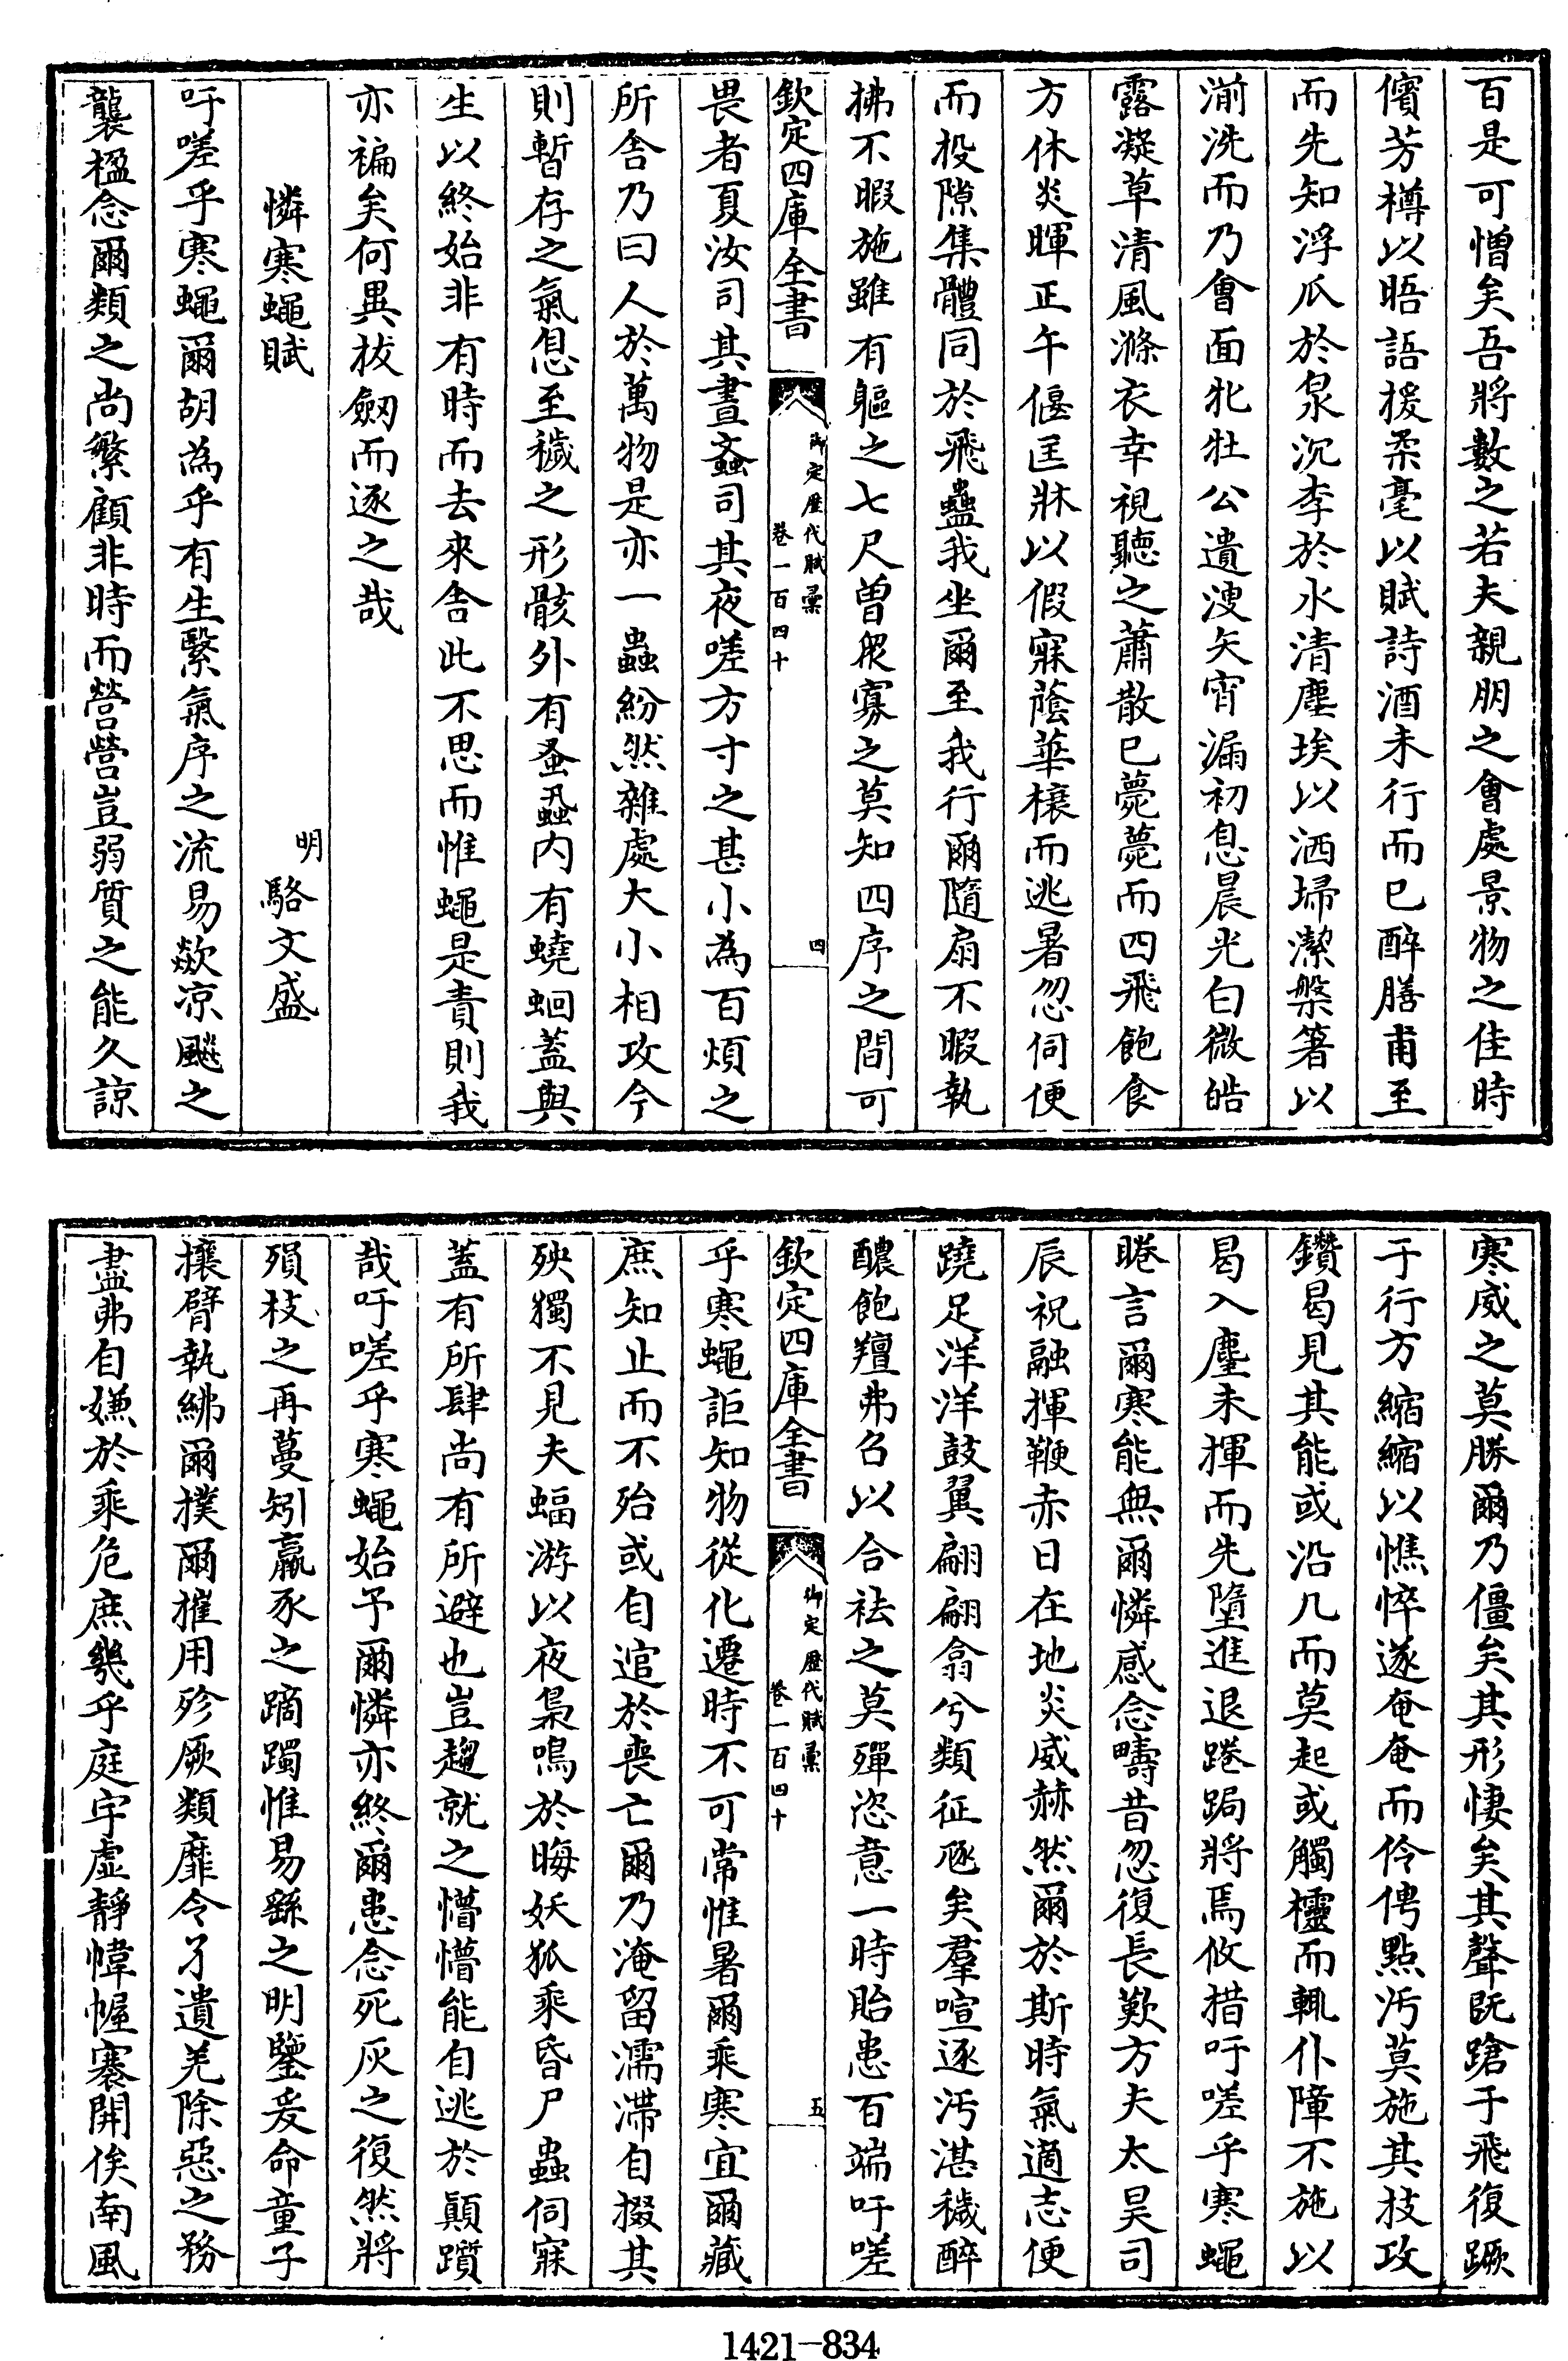 百是可憎矣吾將數之若夫親朋之會處景物之佳時
儐芳樽以晤語援柔毫以賦詩酒未行而已醉膳甫至
而先知浮瓜於泉沉李於水清塵埃以洒埽潔槃箸以
湔洗而乃會面牝牡公遺溲矢宵漏初息晨光白微皓
露凝草清風滌衣幸視聽之蕭散已薨薨而四飛飽食
方休炎暉正午偃匡牀以假寐蔭華榱而逃暑忽伺便
而投隙集體同於飛蠱我坐爾至我行爾隨扇不暇執
拂不暇施雖有軀之七尺曾衆寡之莫知四序之間可
欽定四庫全書
御定歷代賦彙
卷一百四十
四
畏者夏汝司其晝蟁司其夜嗟方寸之甚小為百煩之
所舍乃曰人於萬物是亦一蟲紛然雜處大小相攻今
則暫存之氣息至穢之形骸外有蚤蝨内有蟯蛔蓋與
生以終始非有時而去來舍此不思而惟蠅是責則我
亦褊矣何異拔劒而逐之哉
憐寒蠅賦
明
駱文盛
吁嗟乎寒蠅爾胡為乎有生繄氣序之流易歘凉飈之
襲楹念爾類之尚繁顧非時而營營豈弱質之能久諒
寒威之莫勝爾乃僵矣其形悽矣其聲旣蹌于飛復蹶
于行方縮縮以憔悴遂奄奄而伶俜點汚莫施其技攻
鑽曷見其能或沿几而莫起或觸櫺而輒仆障不施以
曷入塵未揮而先墮進退踡跼將焉攸措吁嗟乎寒蠅
睠言爾寒能無爾憐感念疇昔忽復長歎方夫太昊司
辰祝融揮鞭赤日在地炎威赫然爾於斯時氣適志便
蹺足洋洋鼓翼翩翩翕兮類征豗矣羣喧逐汚湛穢醉
醲飽羶弗召以合祛之莫殫恣意一時貽患百端吁嗟
欽定四庫全書
御定歷代賦彙
卷一百四十
五
乎寒蠅詎知物從化遷時不可常惟暑爾乘寒宜爾藏
庶知止而不殆或自逭於喪亡爾乃淹留濡滯自掇其
殃獨不見夫蝠游以夜梟鳴於晦妖狐乘昏尸蟲伺寐
蓋有所肆尚有所避也豈趨就之懵懵能自逃於顛躓
哉吁嗟乎寒蠅始予爾憐亦終爾患念死灰之復然將
殞枝之再蔓矧羸豕之蹢躅惟易繇之明鑒爰命童子
攘臂執紼爾撲爾摧用殄厥類靡令孑遺羌除惡之務
盡弗自嫌於乘危庶幾乎庭宇虛靜幃幄褰開俟南風
1421-834